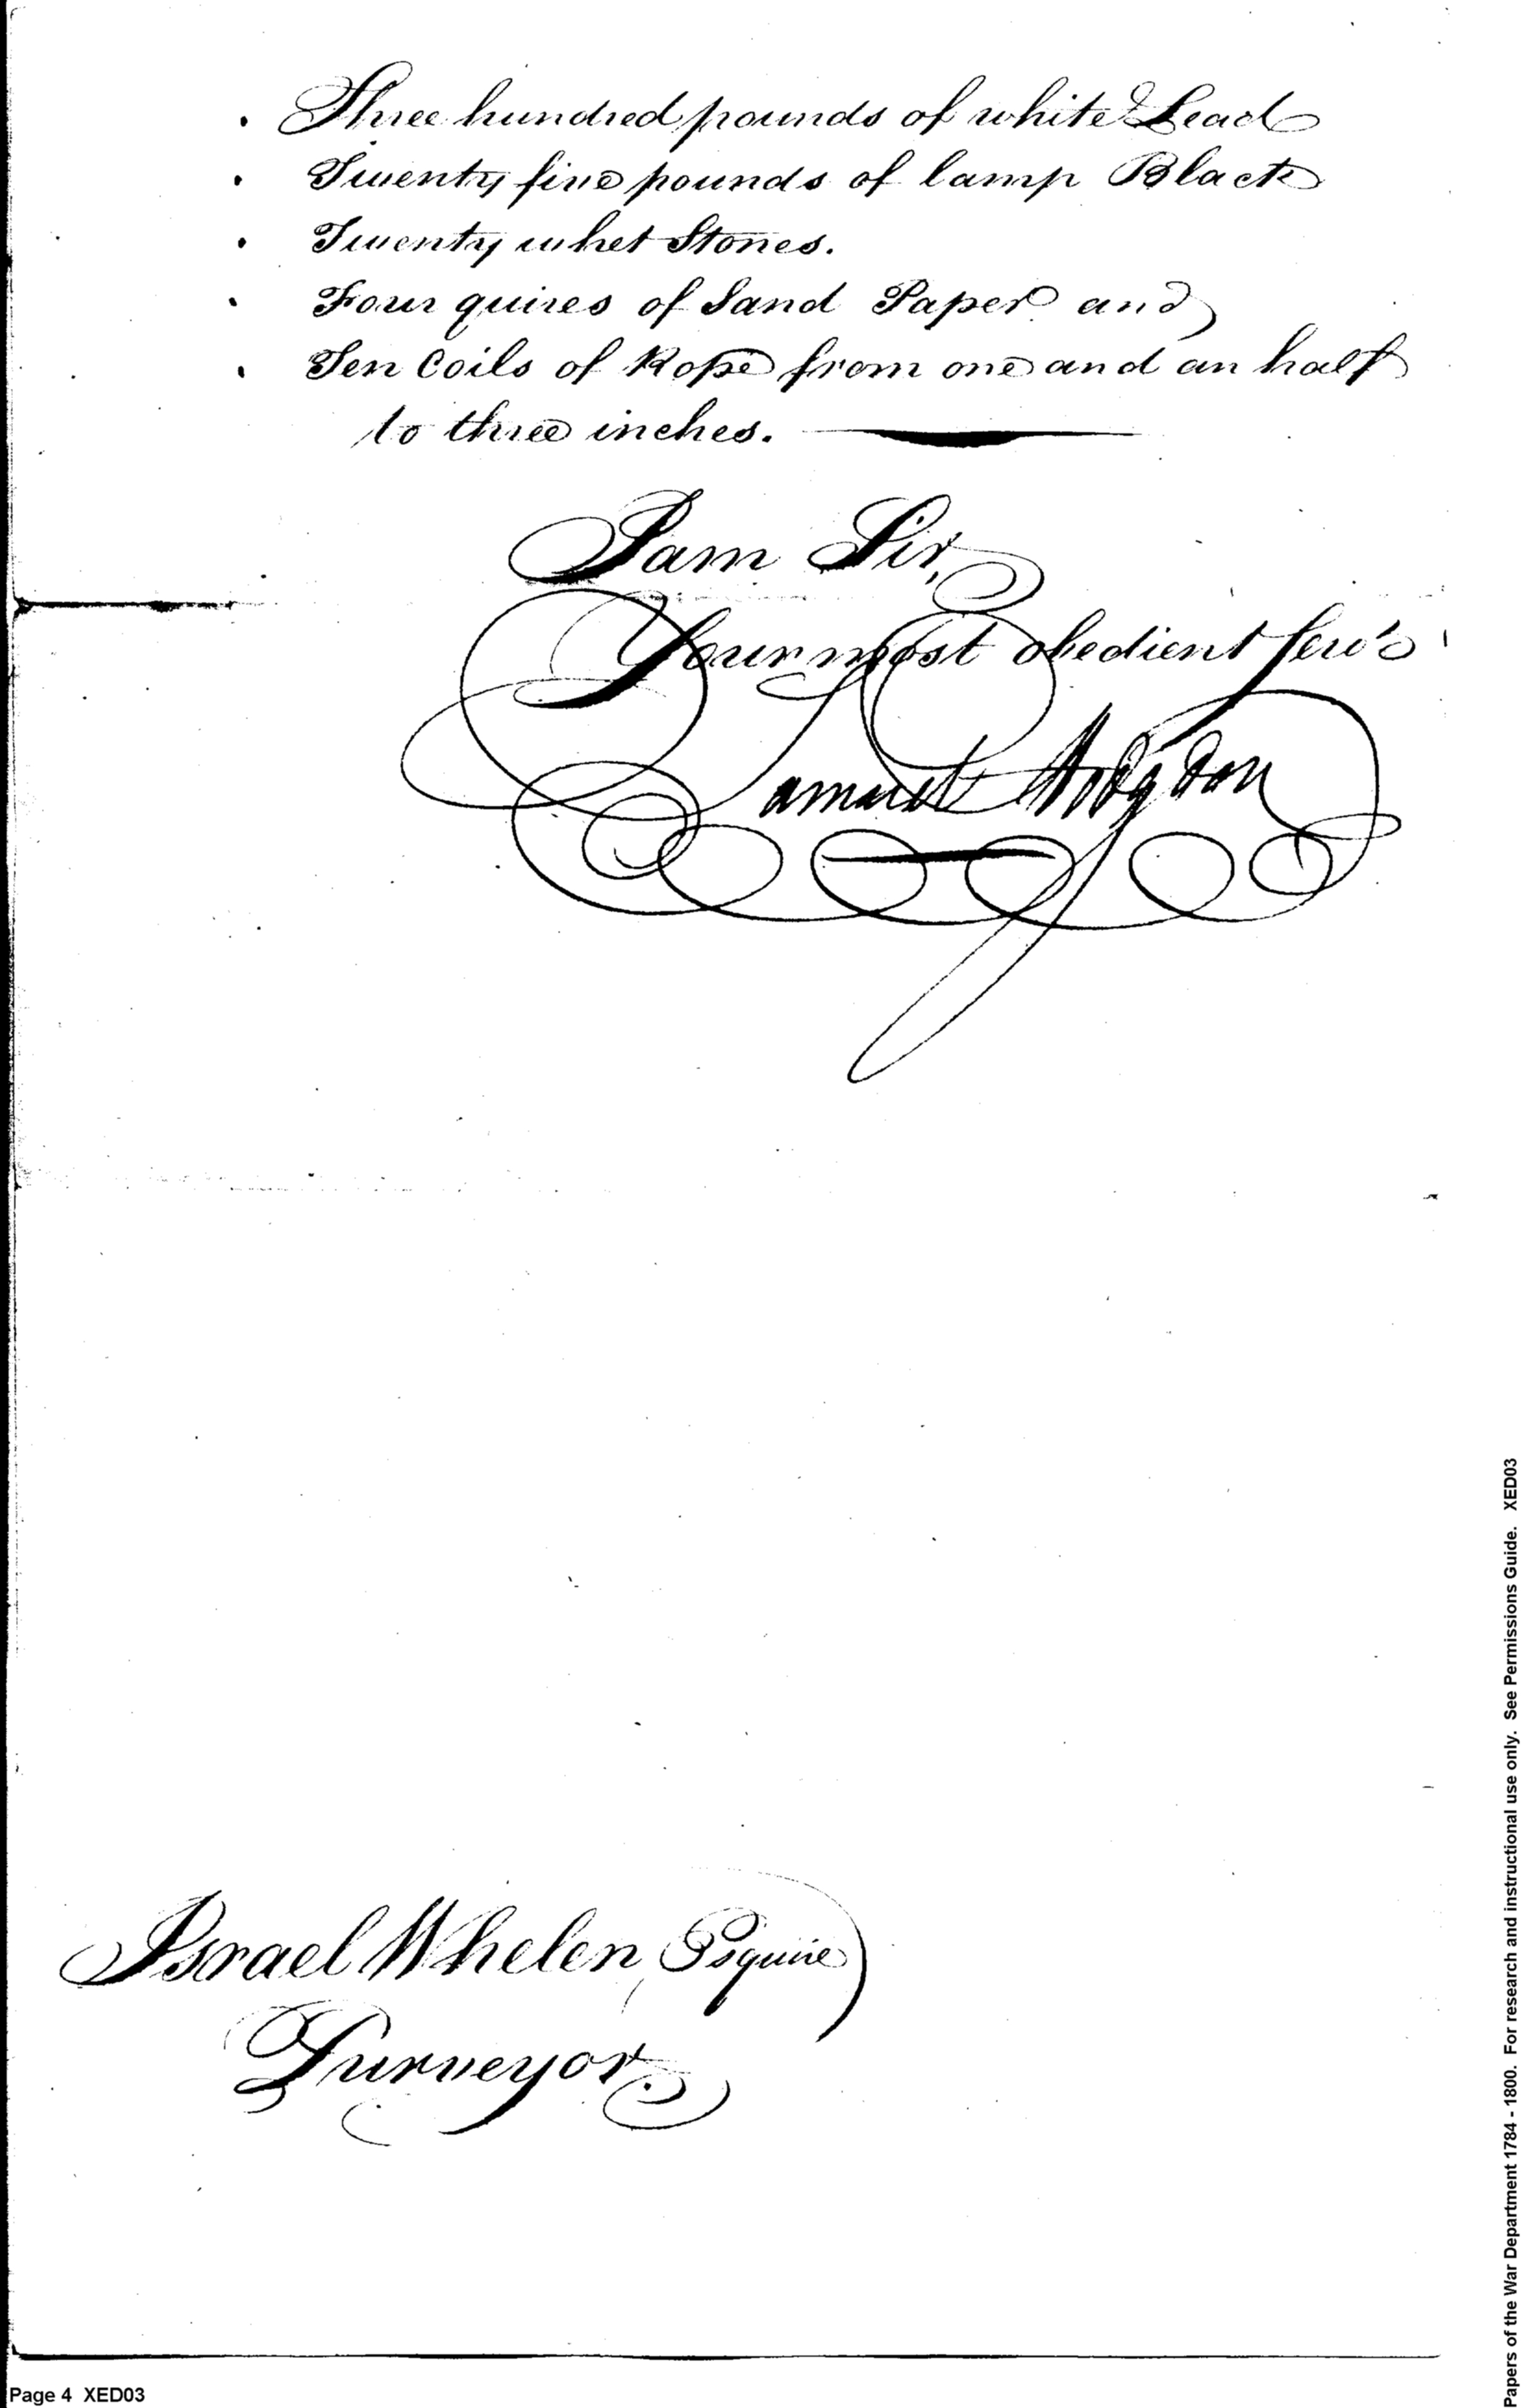 . Three hundred pounds of white Lead
. Twenty five pounds of lamp Black
. Twenty whet Stones.
. Four quires of Sand Paper and
. Ten Coils of Rope from one and an half
to three inches.
I am Sir,
Your most obedient Serv't
Samuel Hodgdon
Israel Whelen Esquire
Purveyor.
Page 4 XED03
Papers of the War Department 1784 - 1800. For research and instructional use only. See Permissions Guide. XED03